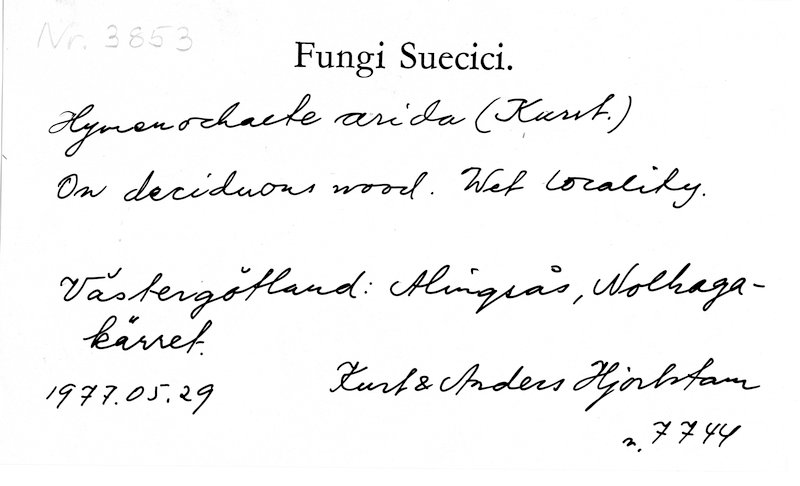 Nr. 3853
Fungi Suecici.
Hymenochaete arida (Karst.)
On deciduous wood. Wet locality.
Västergötland: Alingsås, Nolhaga-
kärret.
1977.05.29
Kurt & Anders Hjortstam
n. 7744